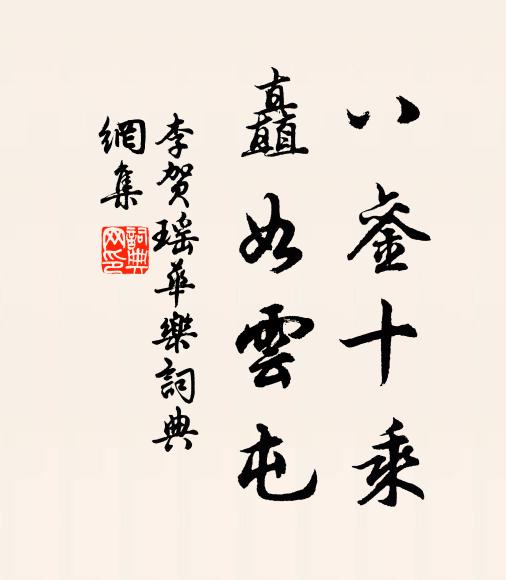 八銮十乘
矗如雲屯
李贺瑶華樂詞典
網集
詞典网印